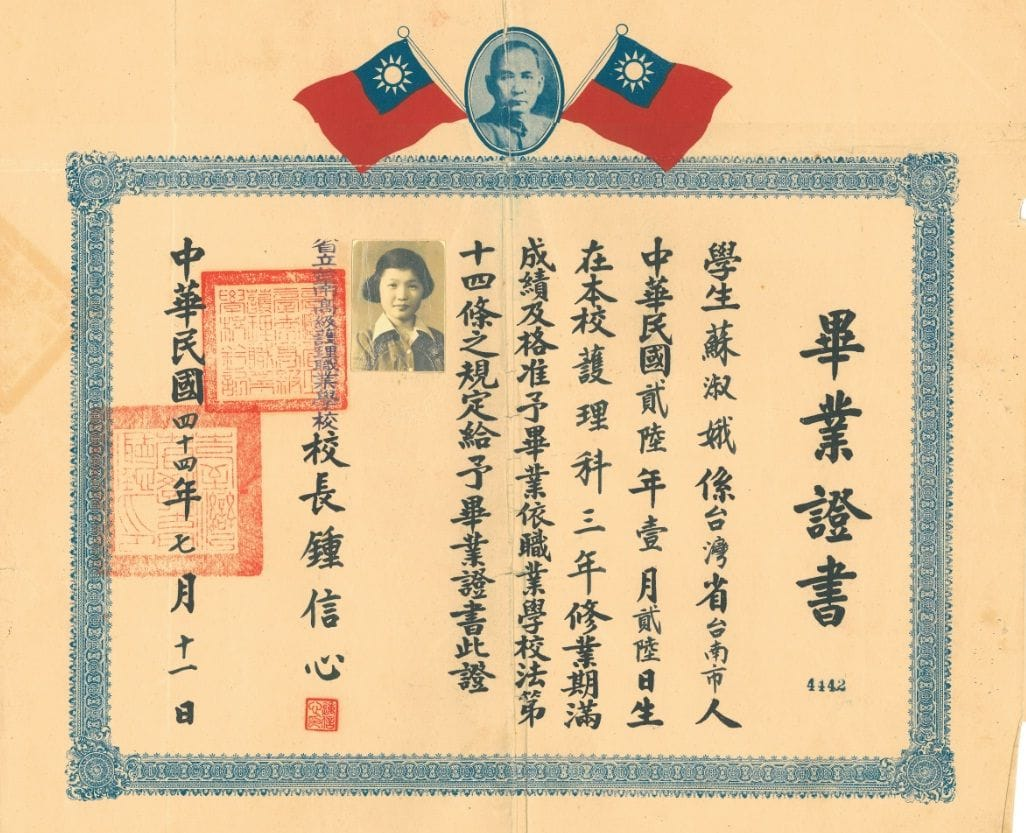 畢業證書
4442
學生蘇淑娥係台灣省台南市人
中華民國貳陸年壹月貳陸日生
在本校護理科三年修業期滿
成績及格准予畢業依職業學校法第
十四條之規定給予畢業證書此證
省立臺南高級護理職業學校
校長鍾信心
中華民國四十四年七月十一日